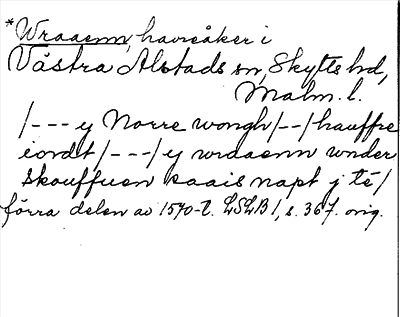 *Wraaenn, havreåker i
Västra Alstads sn, Skytts hd,
Malm. l.
/--- y Norre wongh /--/ hauffre
iordt /---/ y wraaenn wnder
skouffuen kaais napt j tē/
förra delen av 1570-t. LSLB 1, s. 367. orig.